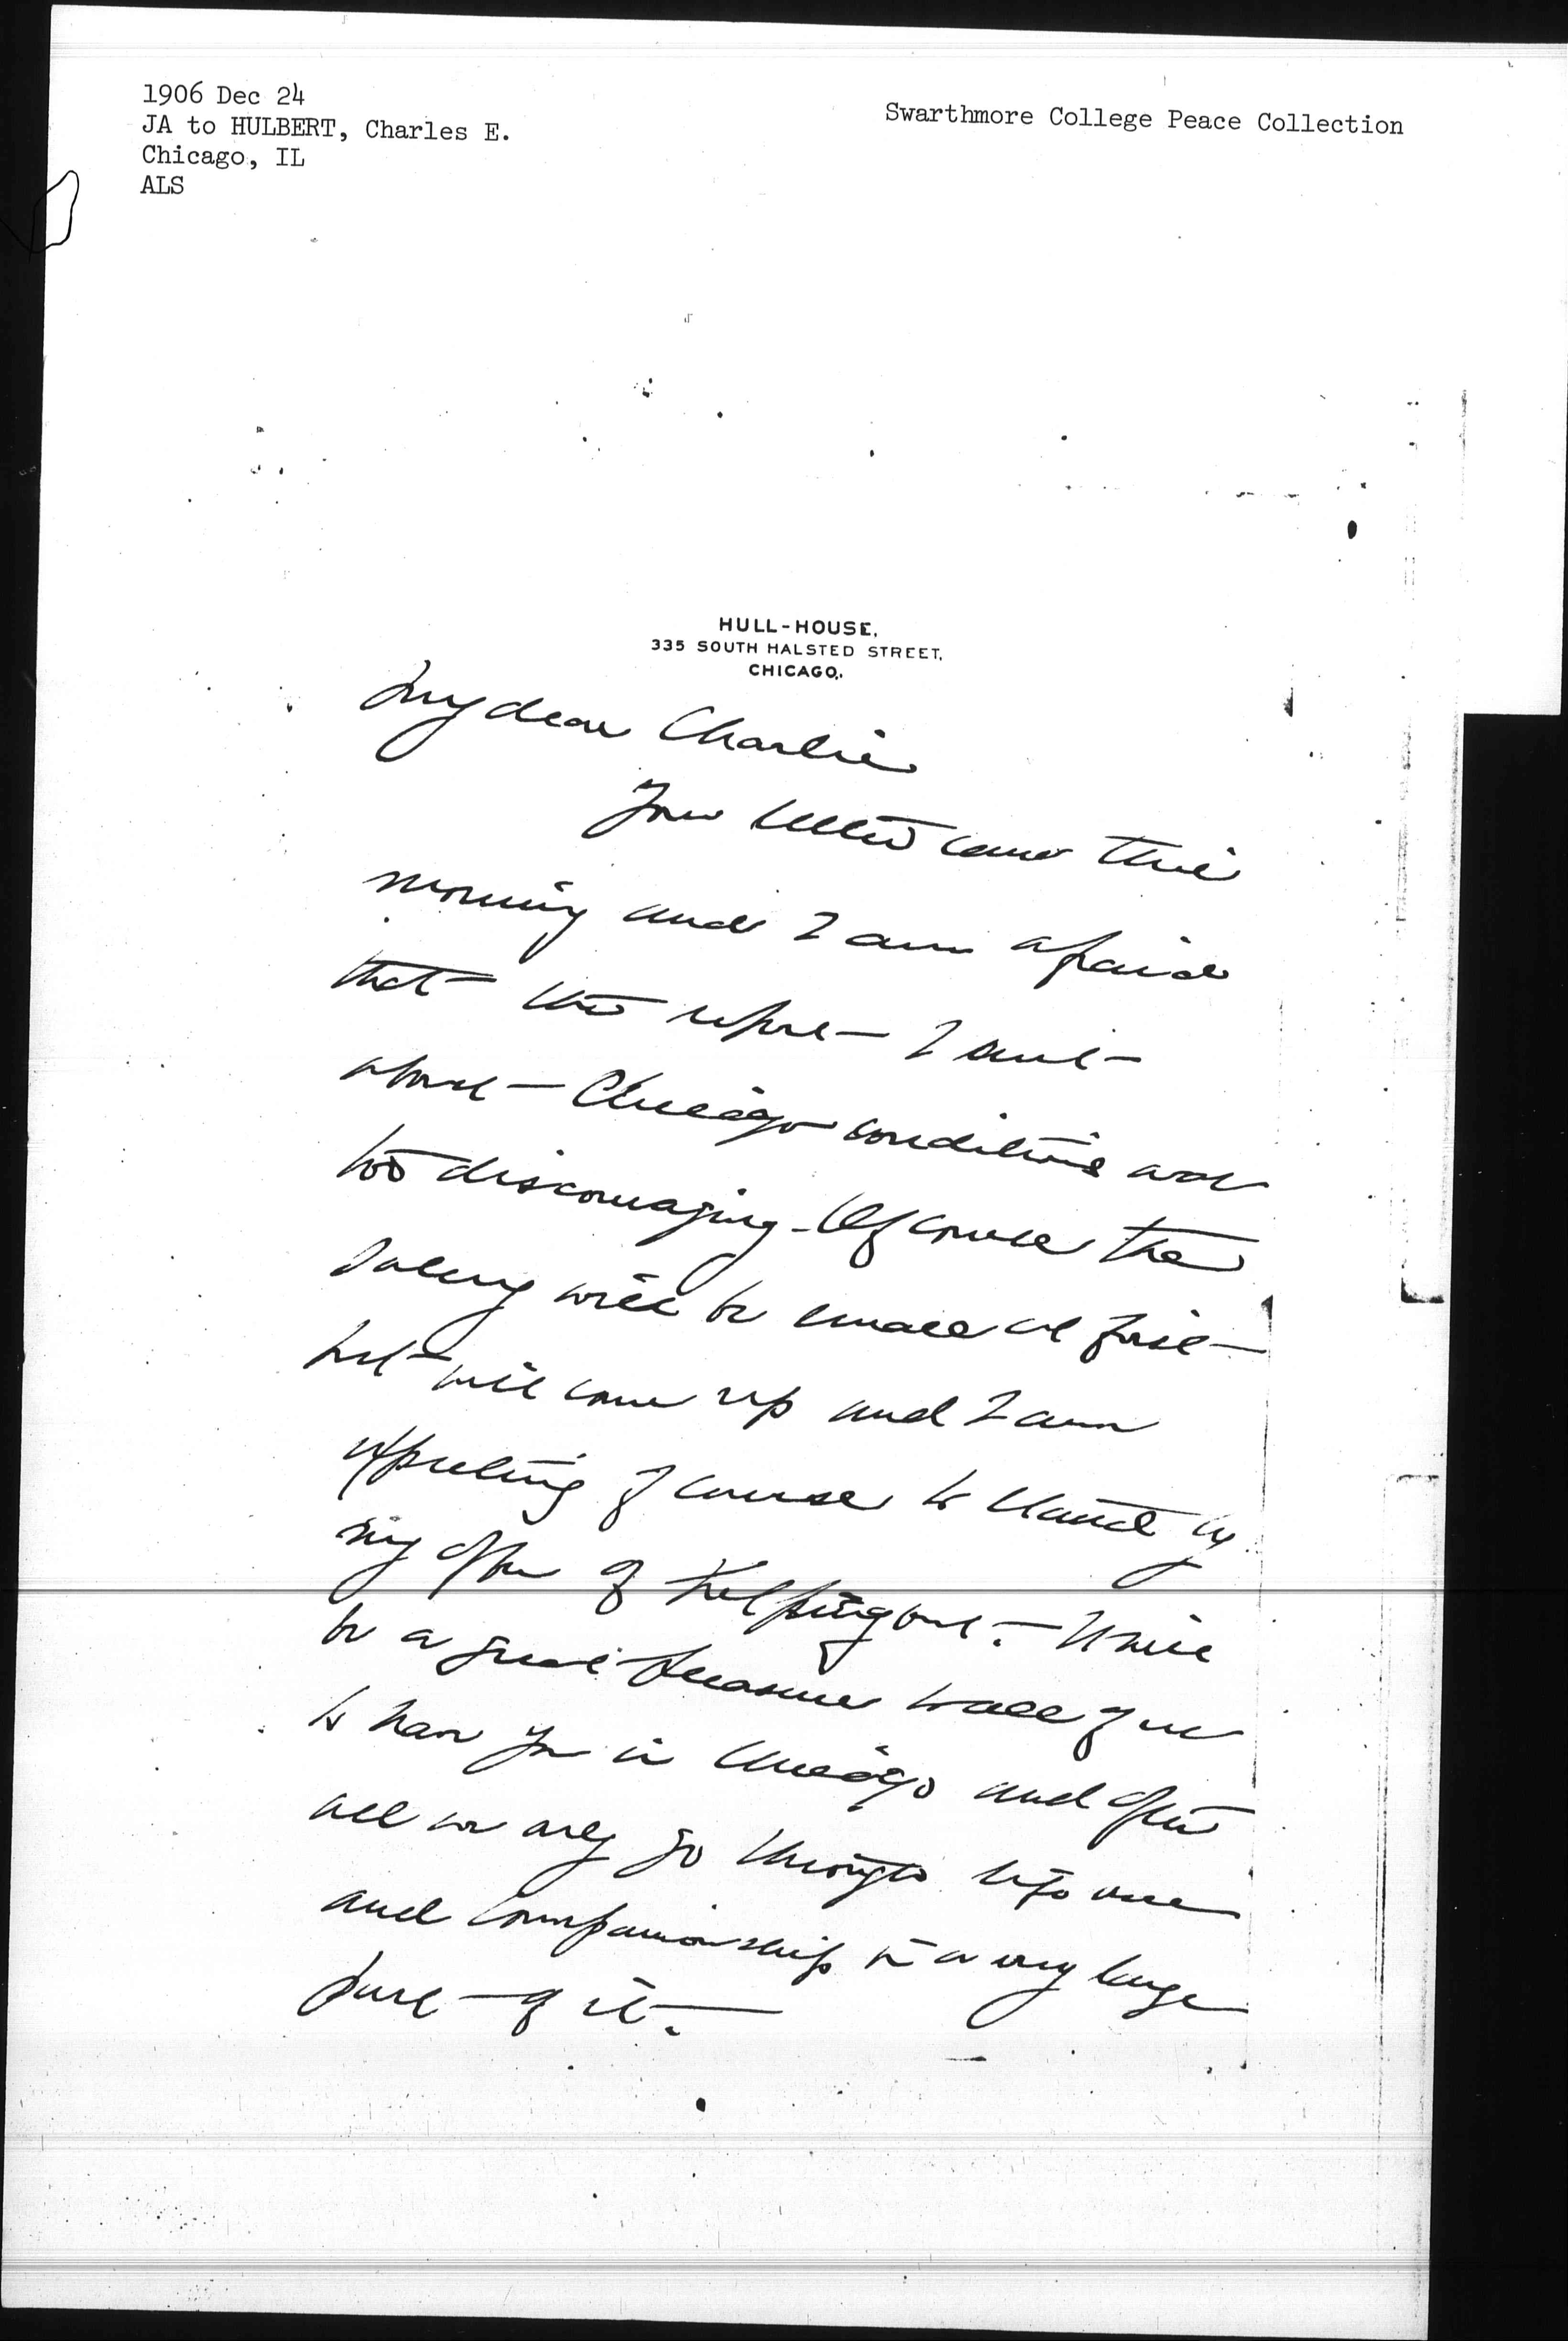 1906 Dec 24
JA to HULBERT, Charles E.
Chicago, IL
ALS
Swarthmore College Peace Collection
HULL-HOUSE,
335 SOUTH HALSTED STREET,
CHICAGO.
My dear Charlie
Your letter came this
morning and I am afraid
that the report I sent
about Chicago conditions was
too discouraging. Of course the
salary will be small at first
but will come up and I am
expecting of course to stand by
my offer of helping out. It will
be a great pleasure to all of us
to have you in Chicago and after
all we only go through life once
and companionship is a very large
part of it.